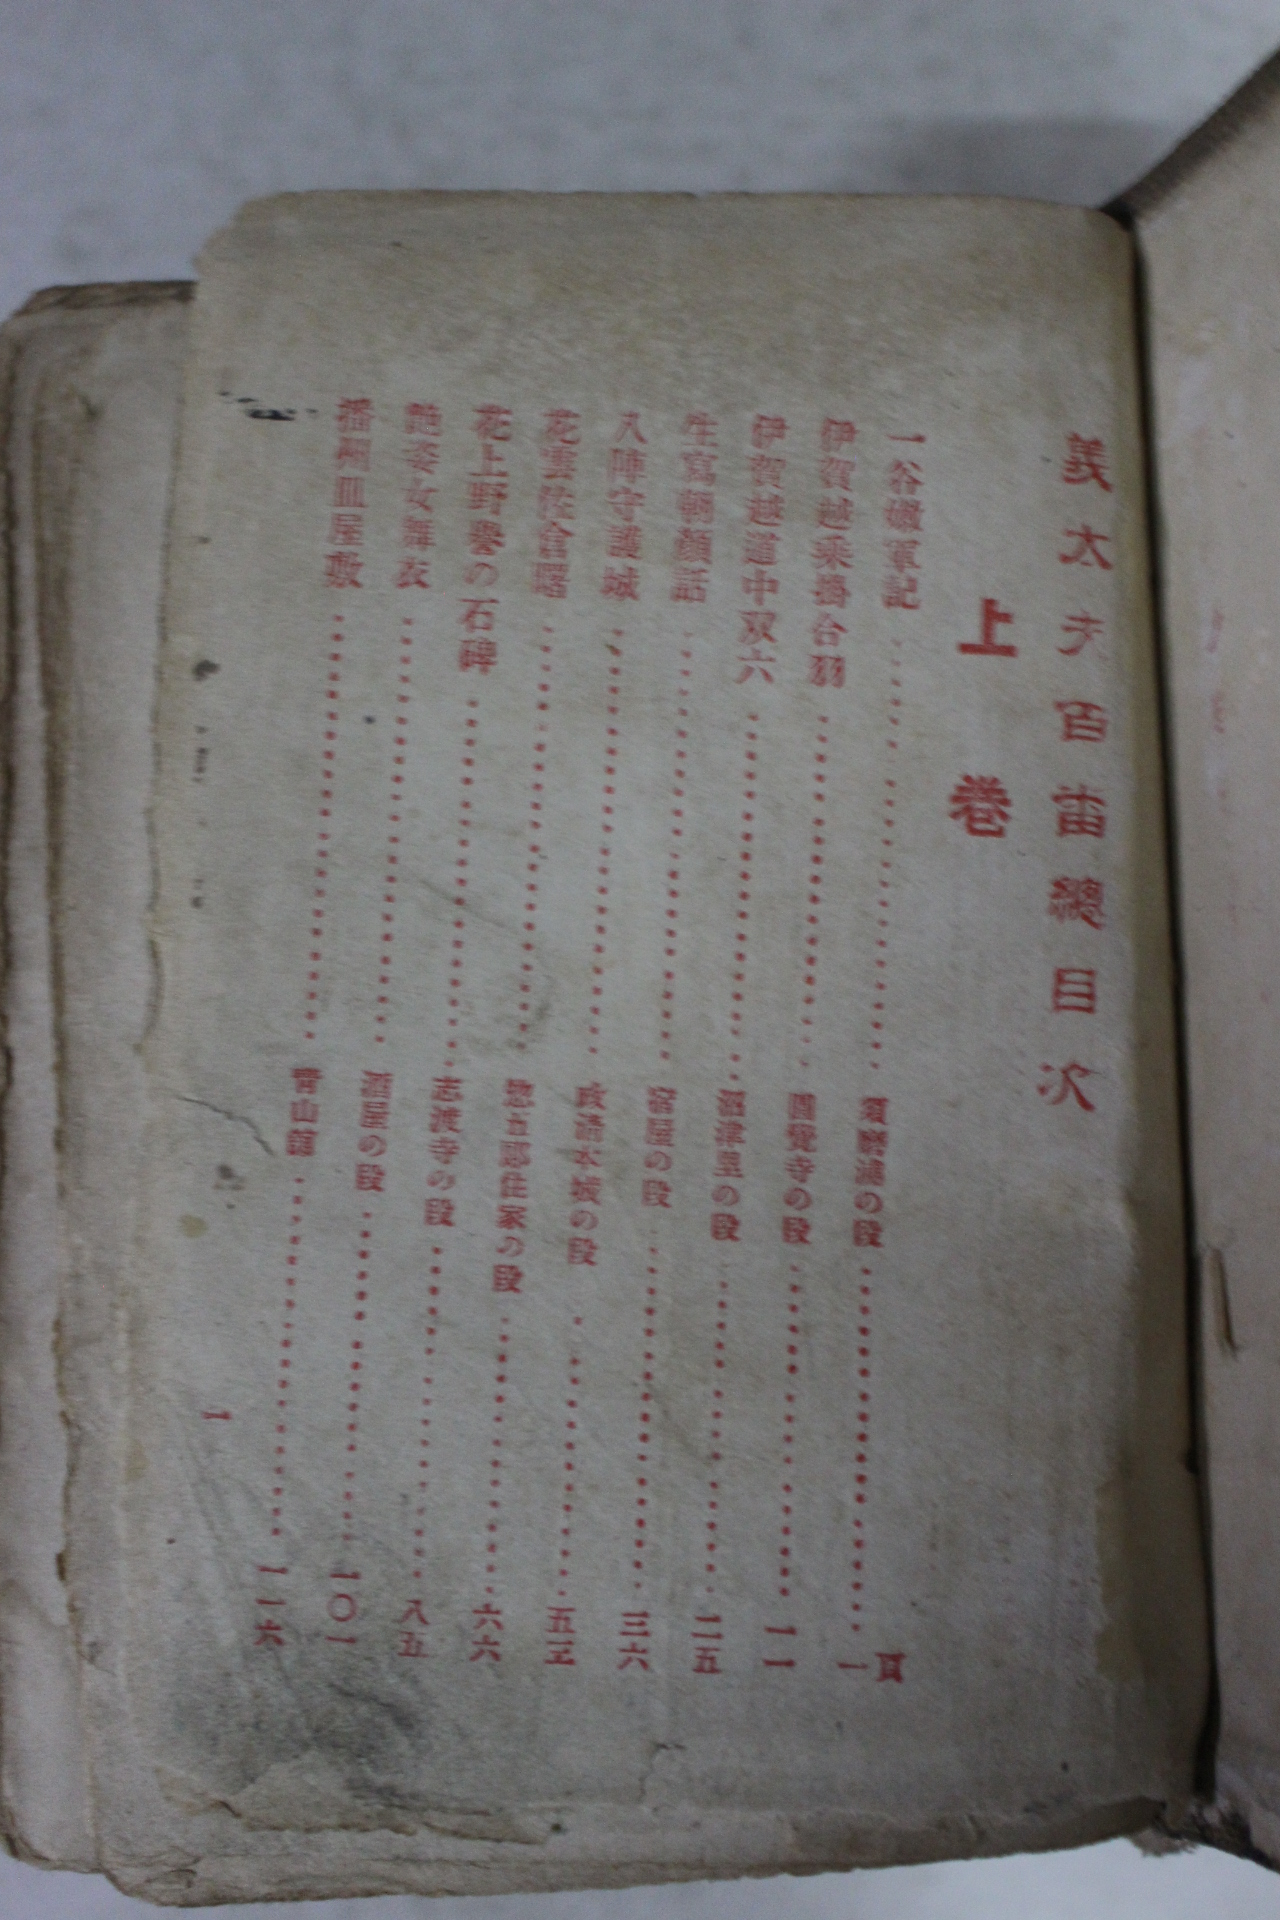 義太夫百番總目次
上卷
頁
一谷嫩軍記………須磨浦の段………一
伊賀越乘掛合羽………圓覺寺の段………一一
伊賀越道中双六………沼津里の段………二五
生寫朝顏話………宿屋の段………三六
八陣守護城………政清本城の段………五三
花雲佐倉曙………惣五郎住家の段………六六
花上野譽の石碑………志渡寺の段………八五
艶姿女舞衣………酒屋の段………一〇一
播州皿屋敷………青山館………一一六
一